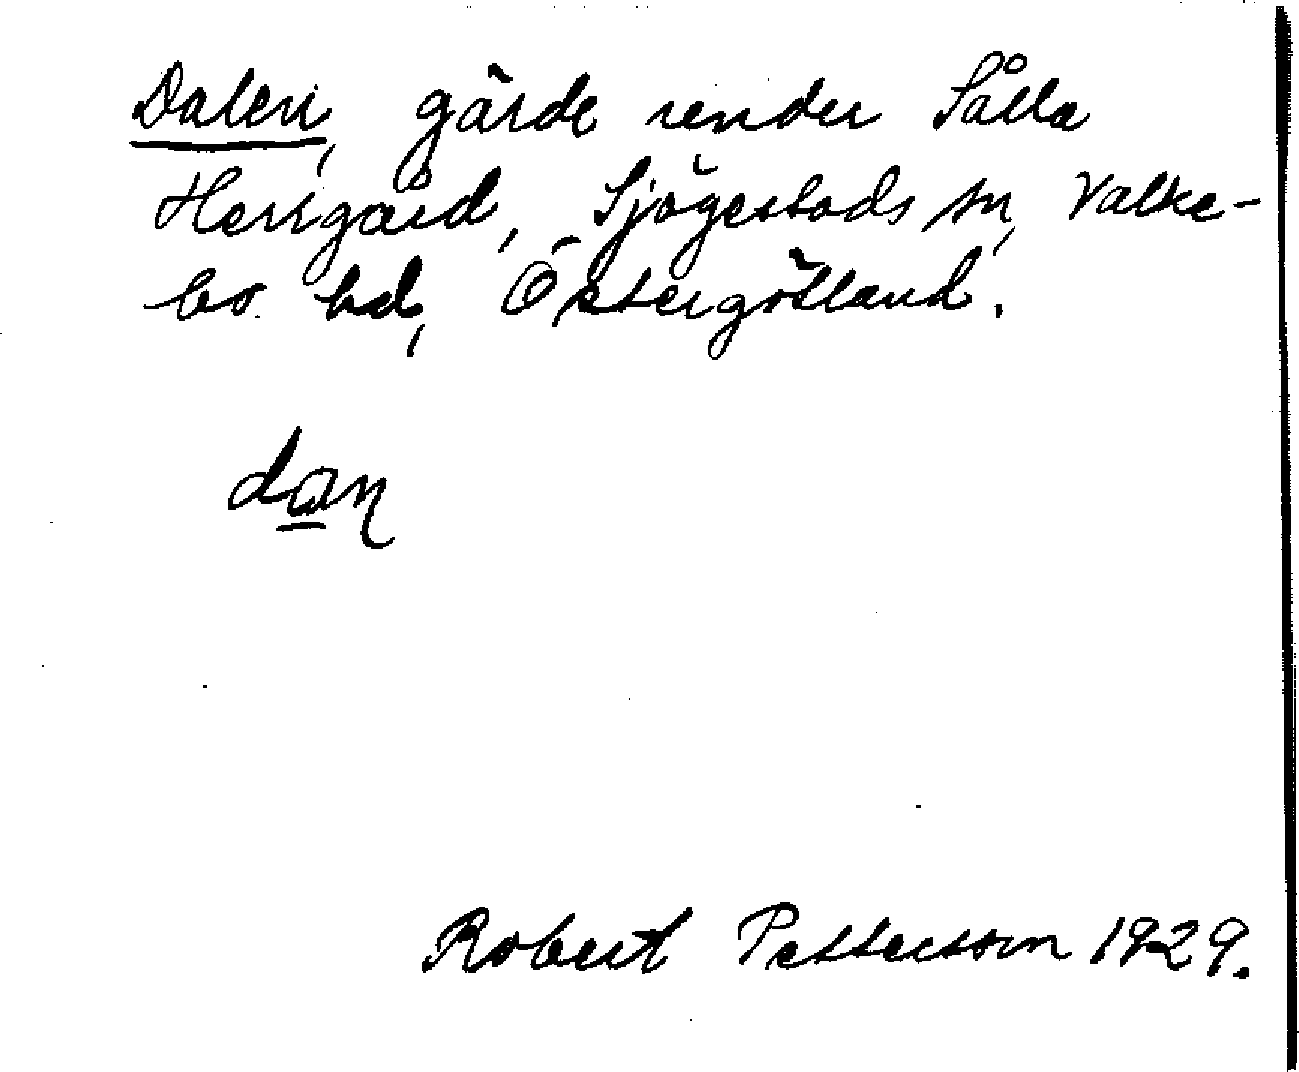 Dalen, gärde under Sålla
Herrgård, Sjögestads sn, Valke-
bo hd, Östergötland.
dan
Robert Pettersson 1929.